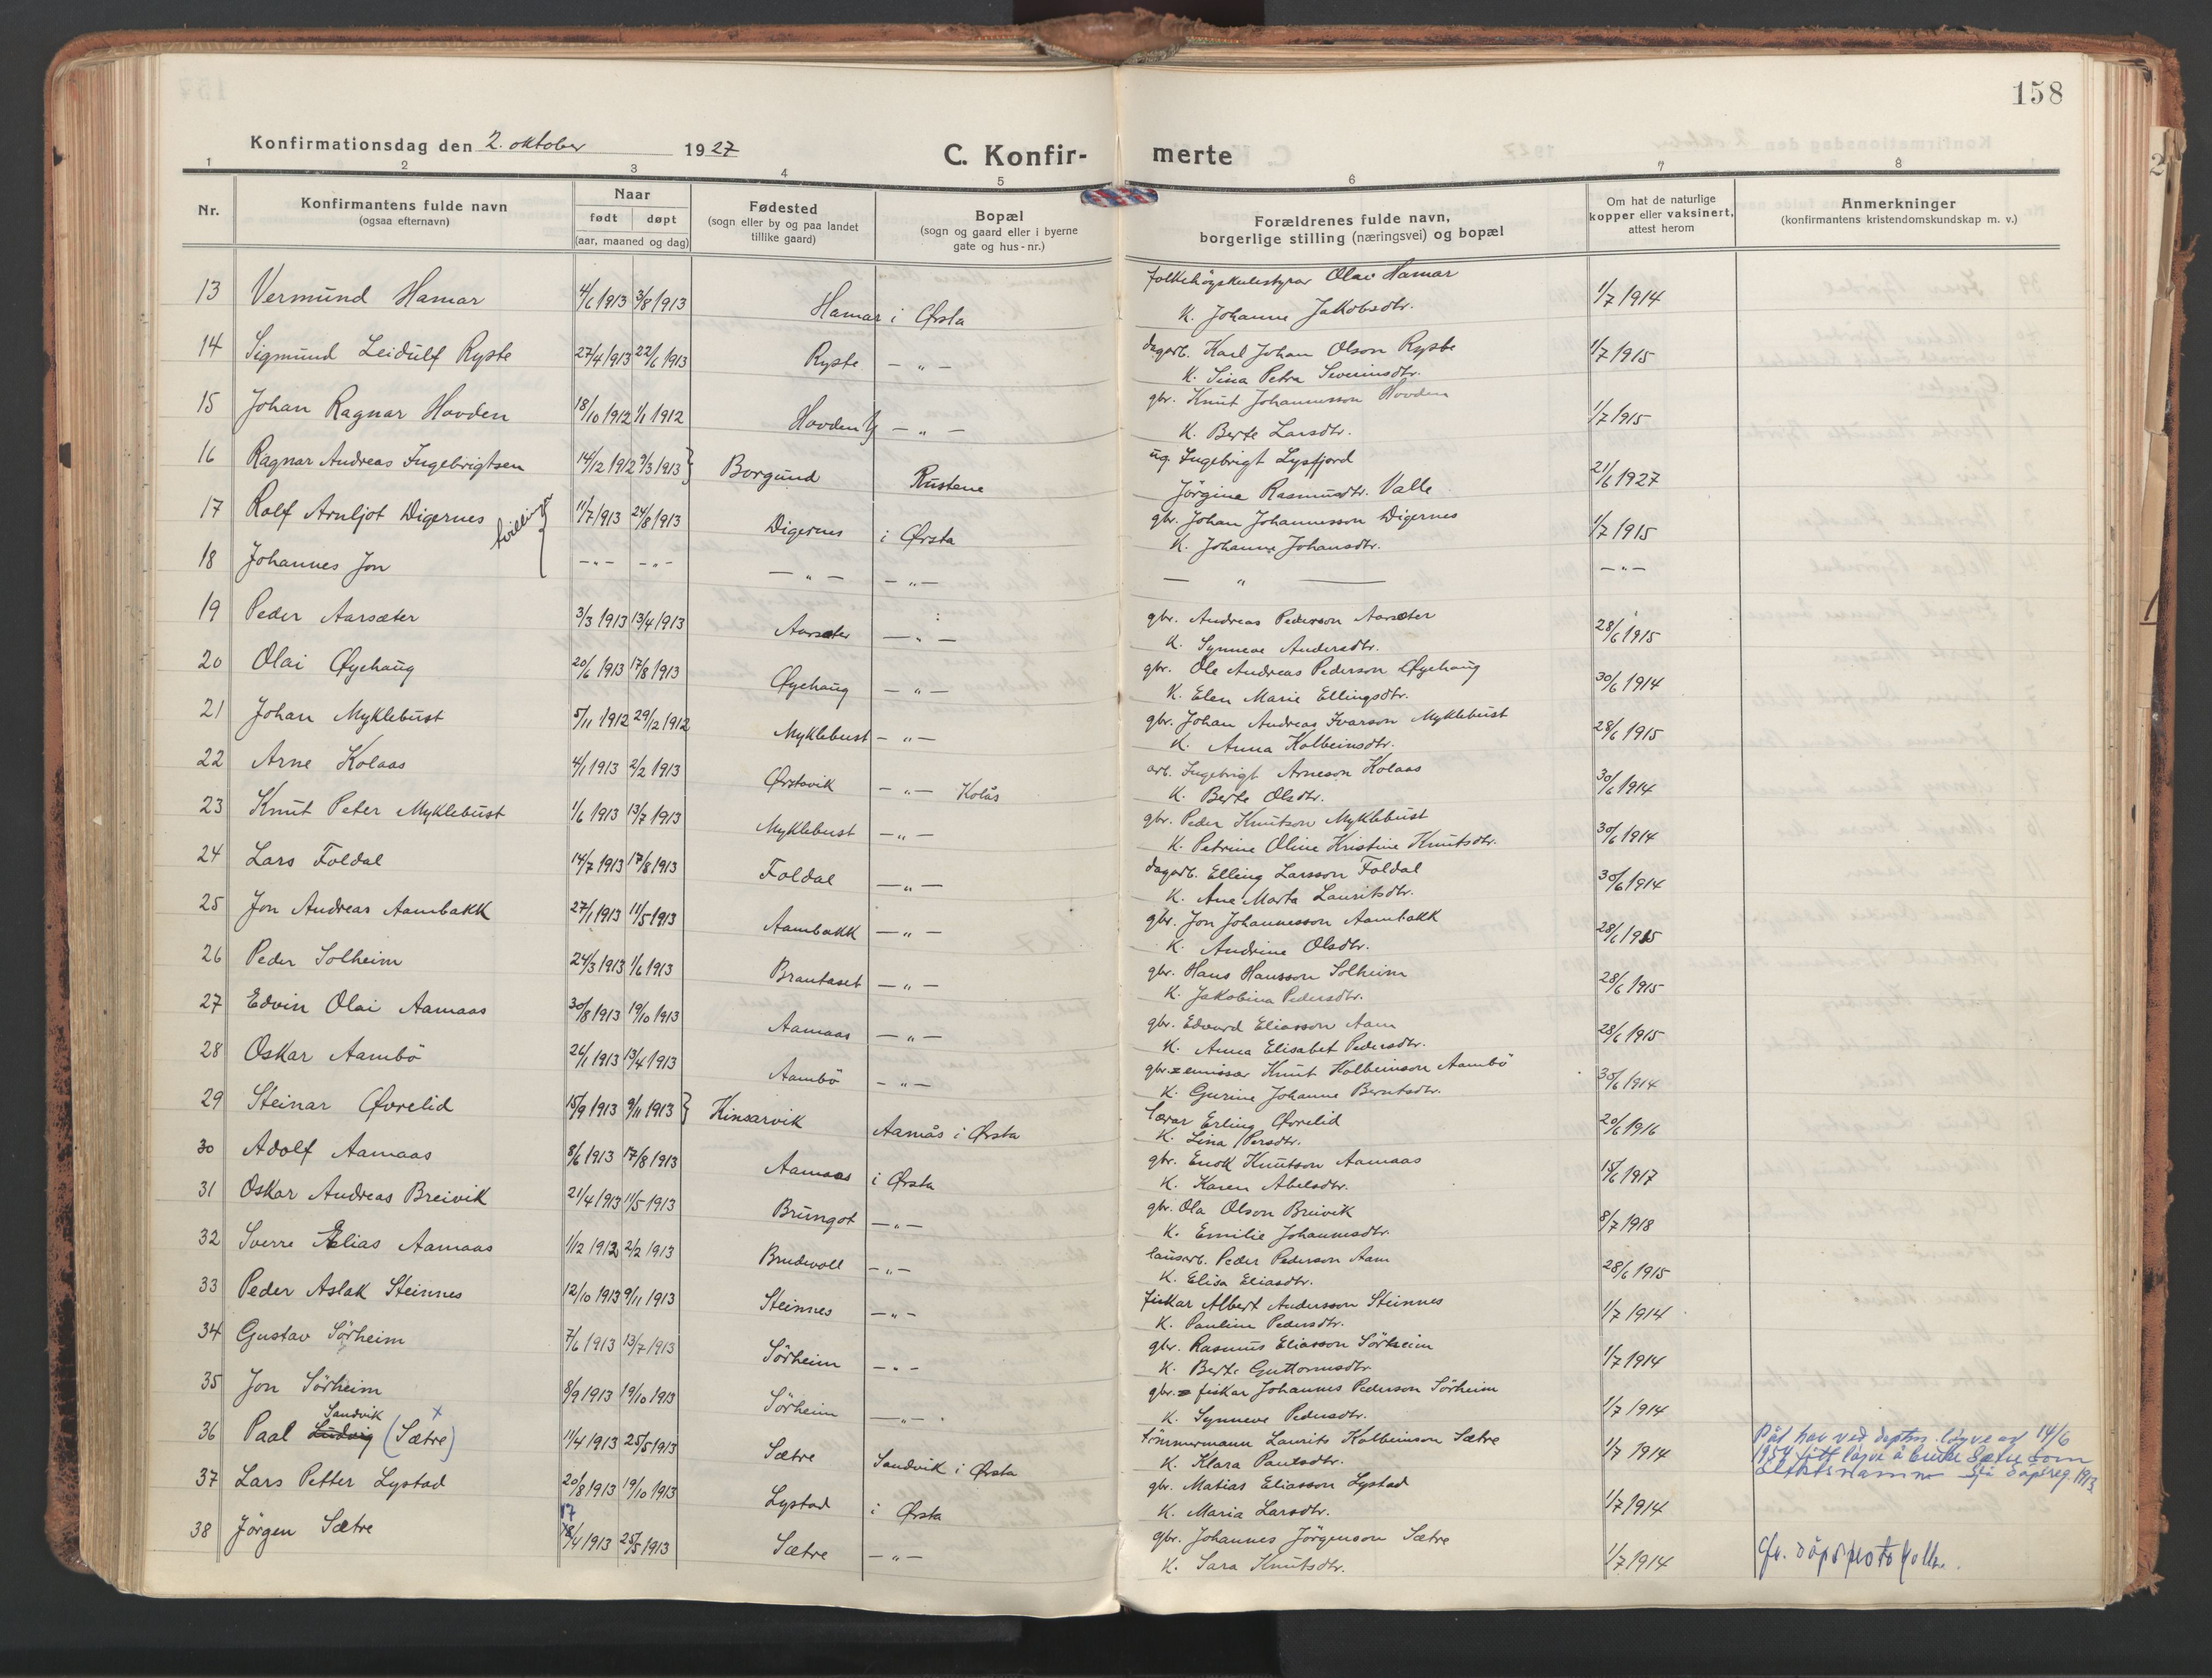 158
Konfirmationsdag den 2. oktober 1927
C. Konfir- merte
1 2 3 4 5 6 7 8
Nr.
Konfirmantens fulde navn
(ogsaa efternavn)
Naar
født døpt
(aar, maaned og dag)
Fødested
(sogn eller by og paa landet
tillike gaard)
Bopæl
(sogn og gaard eller i byerne
gate og hus-nr.)
Forældrenes fulde navn,
borgerlige stilling (næringsvei) og bopæl
Om hat de naturlige
kopper eller vaksinert,
attest herom
Anmerkninger
(konfirmantens kristendomskundskap m. v.)
13 Vermund Hamar 4/6 1913 3/8 1913 Hamar i Ørsta folkehögskulestyrar Olav Hamar 1/7 1914
K. Johanne Jakobsdtr.
14 Sigmund Leidulf Ryste 27/4 1913 22/6 1913 Ryste — „ — dagarb. Karl Johan Olson Ryste 1/7 1915
K. Sina Petra Severinsdtr.
15 Johan Ragnar Hovden 18/10 1912 1/1 1912 Hovden — „ — gbr. Knut Johannesson Hovden 1/7 1915
K. Berte Larsdtr.
16 Ragnar Andreas Ingebrigtsen 14/12 1912 9/3 1913 } Borgund Rustene ug. Ingebrigt Lysfjord 21/6 1927
Jörgine Rasmusdtr. Valle
17 Rolf Arnljot Digernes 11/7 1913 24/8 1913 Digernes i Ørsta gbr. Johan Johannesson Digernes 1/7 1915
tvillingar K. Johanne Johansdtr.
18 Johannes Jon -„- -„- — „ — — „ — — „ — — „ —
19 Peder Aarsæter 3/3 1913 13/4 1913 Aarsæter — „ — gbr. Andreas Pederson Aarsæter 28/6 1915
K. Synneve Andersdtr.
20 Olai Øyehaug 20/6 1913 17/8 1913 Øyehaug — „ — gbr. Ole Andreas Pederson Øyehaug 30/6 1914
K. Elen Marie Ellingsdtr.
21 Johan Myklebust 5/11 1912 29/12 1912 Myklebust — „ — gbr. Johan Andreas Ivarson Myklebust 28/6 1915
K. Anna Kolbeinsdtr.
22 Arne Kolaas 4/1 1913 2/2 1913 Ørstavik — „ — Kolås arb. Ingebrigt Arneson Kolaas 30/6 1914
K. Berte Olsdtr.
23 Knut Peter Myklebust 1/6 1913 13/7 1913 Myklebust — „ — gbr. Peder Knutson Myklebust 30/6 1914
K. Petrine Oline Kristine Knutsdtr.
24 Lars Foldal 14/7 1913 17/8 1913 Foldal — „ — dagarb. Elling Larsson Foldal 30/6 1914
K. Ane Marta Lauritsdtr.
25 Jon Andreas Aambakk 27/1 1913 11/5 1913 Aambakk — „ — gbr. Jon Johannesson Aambakk 28/6 1915
K. Andrine Olsdtr.
26 Peder Solheim 24/3 1913 1/6 1913 Brautaset — „ — gbr. Hans Hansson Solheim 28/6 1915
K. Jakobina Pedersdtr.
27 Edvin Olai Aamaas 30/8 1913 19/10 1913 Aamaas — „ — gbr. Edvard Eliasson Aam 28/6 1915
K. Anna Elisabet Pedersdtr.
28 Oskar Aambö 26/1 1913 13/4 1913 Aambö — „ — gbr = emissær Knut Kolbeinson Aambö 30/6 1914
K. Gurine Johanne Berntsdtr.
29 Steinar Øvrelid 15/9 1913 9/11 1913 } Kinsarvik Aamås i Ørsta lærar Erling Øvrelid 20/6 1916
K. Lina Persdtr.
30 Adolf Aamaas 8/6 1913 17/8 1913 Aamaas i Ørsta gbr. Enok Knutson Aamaas 15/6 1917
K. Karen Abelsdtr.
31 Oskar Andreas Breivik 21/4 1913 11/5 1913 Brungot — „ — gbr. Ola Olson Breivik 8/7 1918
K. Emilie Johannesdtr.
32 Sverre Elias Aamaas 1/12 1912 2/2 1913 Brudevoll — „ — lausarb. Peder Pederson Aam 28/6 1915
K. Elisa Eliasdtr.
33 Peder Aslak Steinnes 12/10 1913 9/11 1913 Steinnes — „ — fiskar Albert Andersson Steinnes 1/7 1914
K. Pauline Pedersdtr.
34 Gustav Sörheim 7/6 1913 13/7 1913 Sörheim — „ — gbr. Rasmus Eliasson Sörheim 1/7 1914
K. Berte Guttormsdtr.
35 Jon Sörheim 8/9 1913 19/10 1913 Sörheim — „ — gbr. = fiskar Johannes Pederson Sörheim 1/7 1914
K. Synneve Pedersdtr.
Sandvik x
36 Paal Ludvig (Sætre) 11/4 1913 25/5 1913 Sætre Sandvik i Ørsta tömmermann Laurits Kolbeinson Sætre 1/7 1914 Pål hav ved deptm. löyve av 14/6
K. Klara Paulsdtr. 1954 fått löyve å bruke Sætre som
slektsnamn Sjå dåpsreg. 1913
37 Lars Petter Lystad 20/8 1913 19/10 1913 Lystad i Ørsta gbr. Matias Eliasson Lystad 1/7 1914
K. Maria Larsdtr.
17
38 Jörgen Sætre 18/4 1913 25/5 1913 Sætre — „ — gbr. Johannes Jörgenson Sætre 1/7 1914 Cfr. dåpsprotokollen.
K. Sara Knutsdtr.